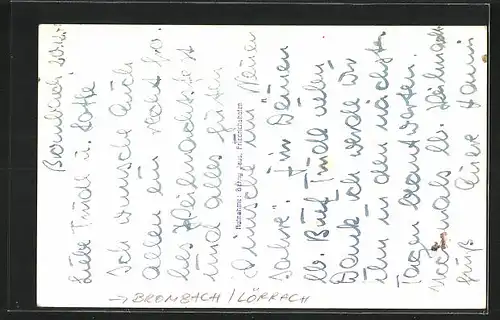 Brombach, 20.12.
Liebe Trudl u. Lotte
Ich wünsche Euch
allen ein recht fro-
hes Weihnachtsfest
und alles Guten
Wünsche im Neuen
Jahre! Für Deinen
lb. Brief Trudl vielen
Dank ich werde Dir
ihn in den nächsten
Tagen beantworten.
Nochmals lb. Weihnachts
grüß Eure
→ BROMBACH / LÖRRACH